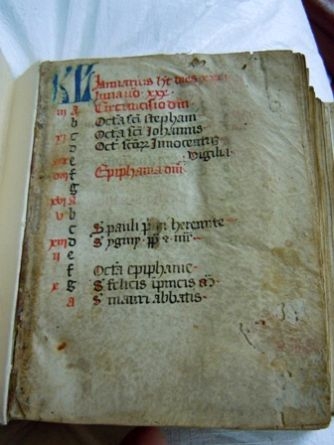 KL Januarius ht dies xxxi
luna uo xxx
iii a Circūcisio dni
b Octa sci stephani
xi c Octa sci Johannis
d Oct scoꝝ Innocentiu
xix e Vigilia
viii f Epiphania dni
g
xvi a
v b
c S pauli p mi heremite
xiii d S ygini pp & mr
ii e
f Octa epiphanie
x g S felicis ipincis
a S mauri abbatis